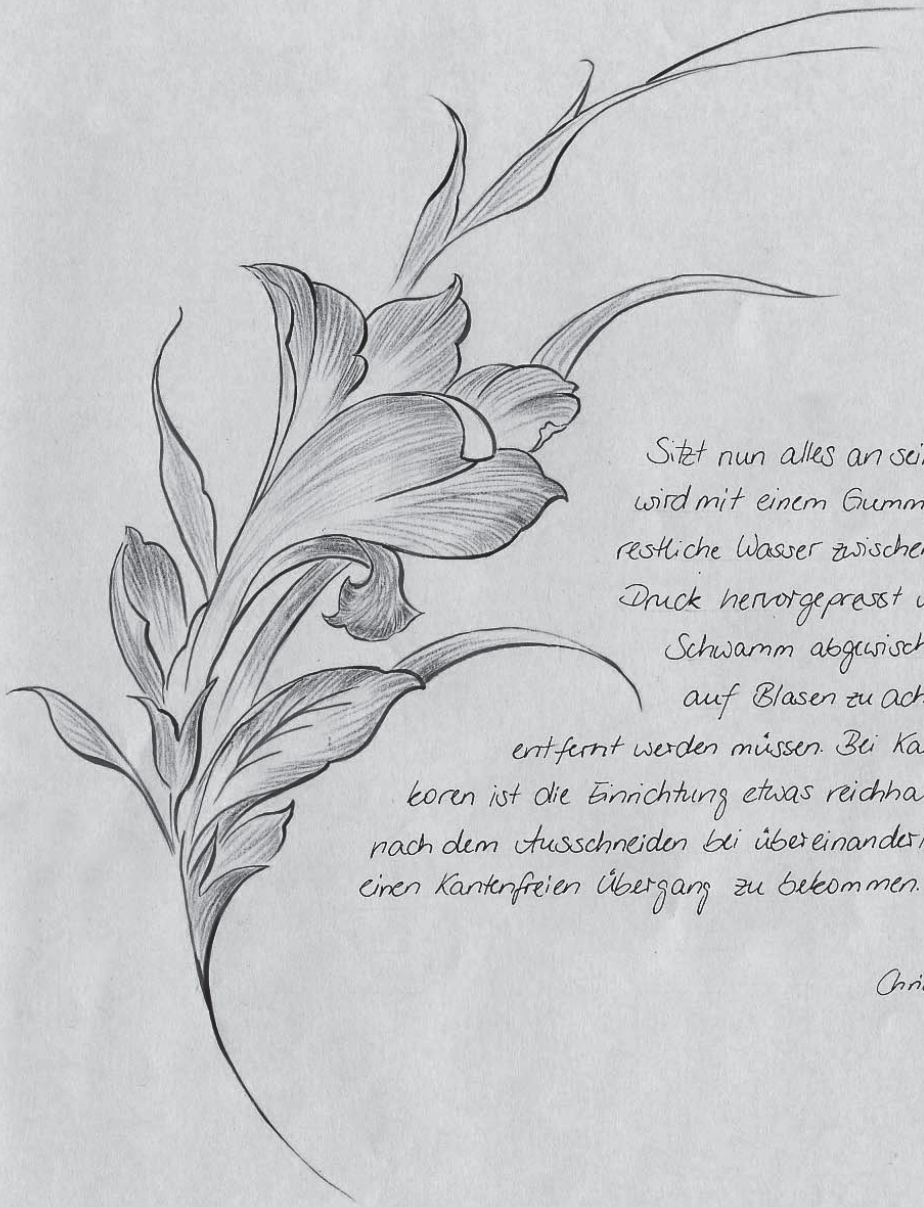 Sitzt nun alles an sei
wird mit einem Gumm
restliche Wasser zwische
Druck hervorgepresst
Schwamm abgewisch
auf Blasen zu ach
entfernt werden müssen. Bei Ka
koren ist die Einrichtung etwas reichha
nach dem Ausschneiden bei übereinander
einen Kantenfreien Übergang zu bekommen.
Chri